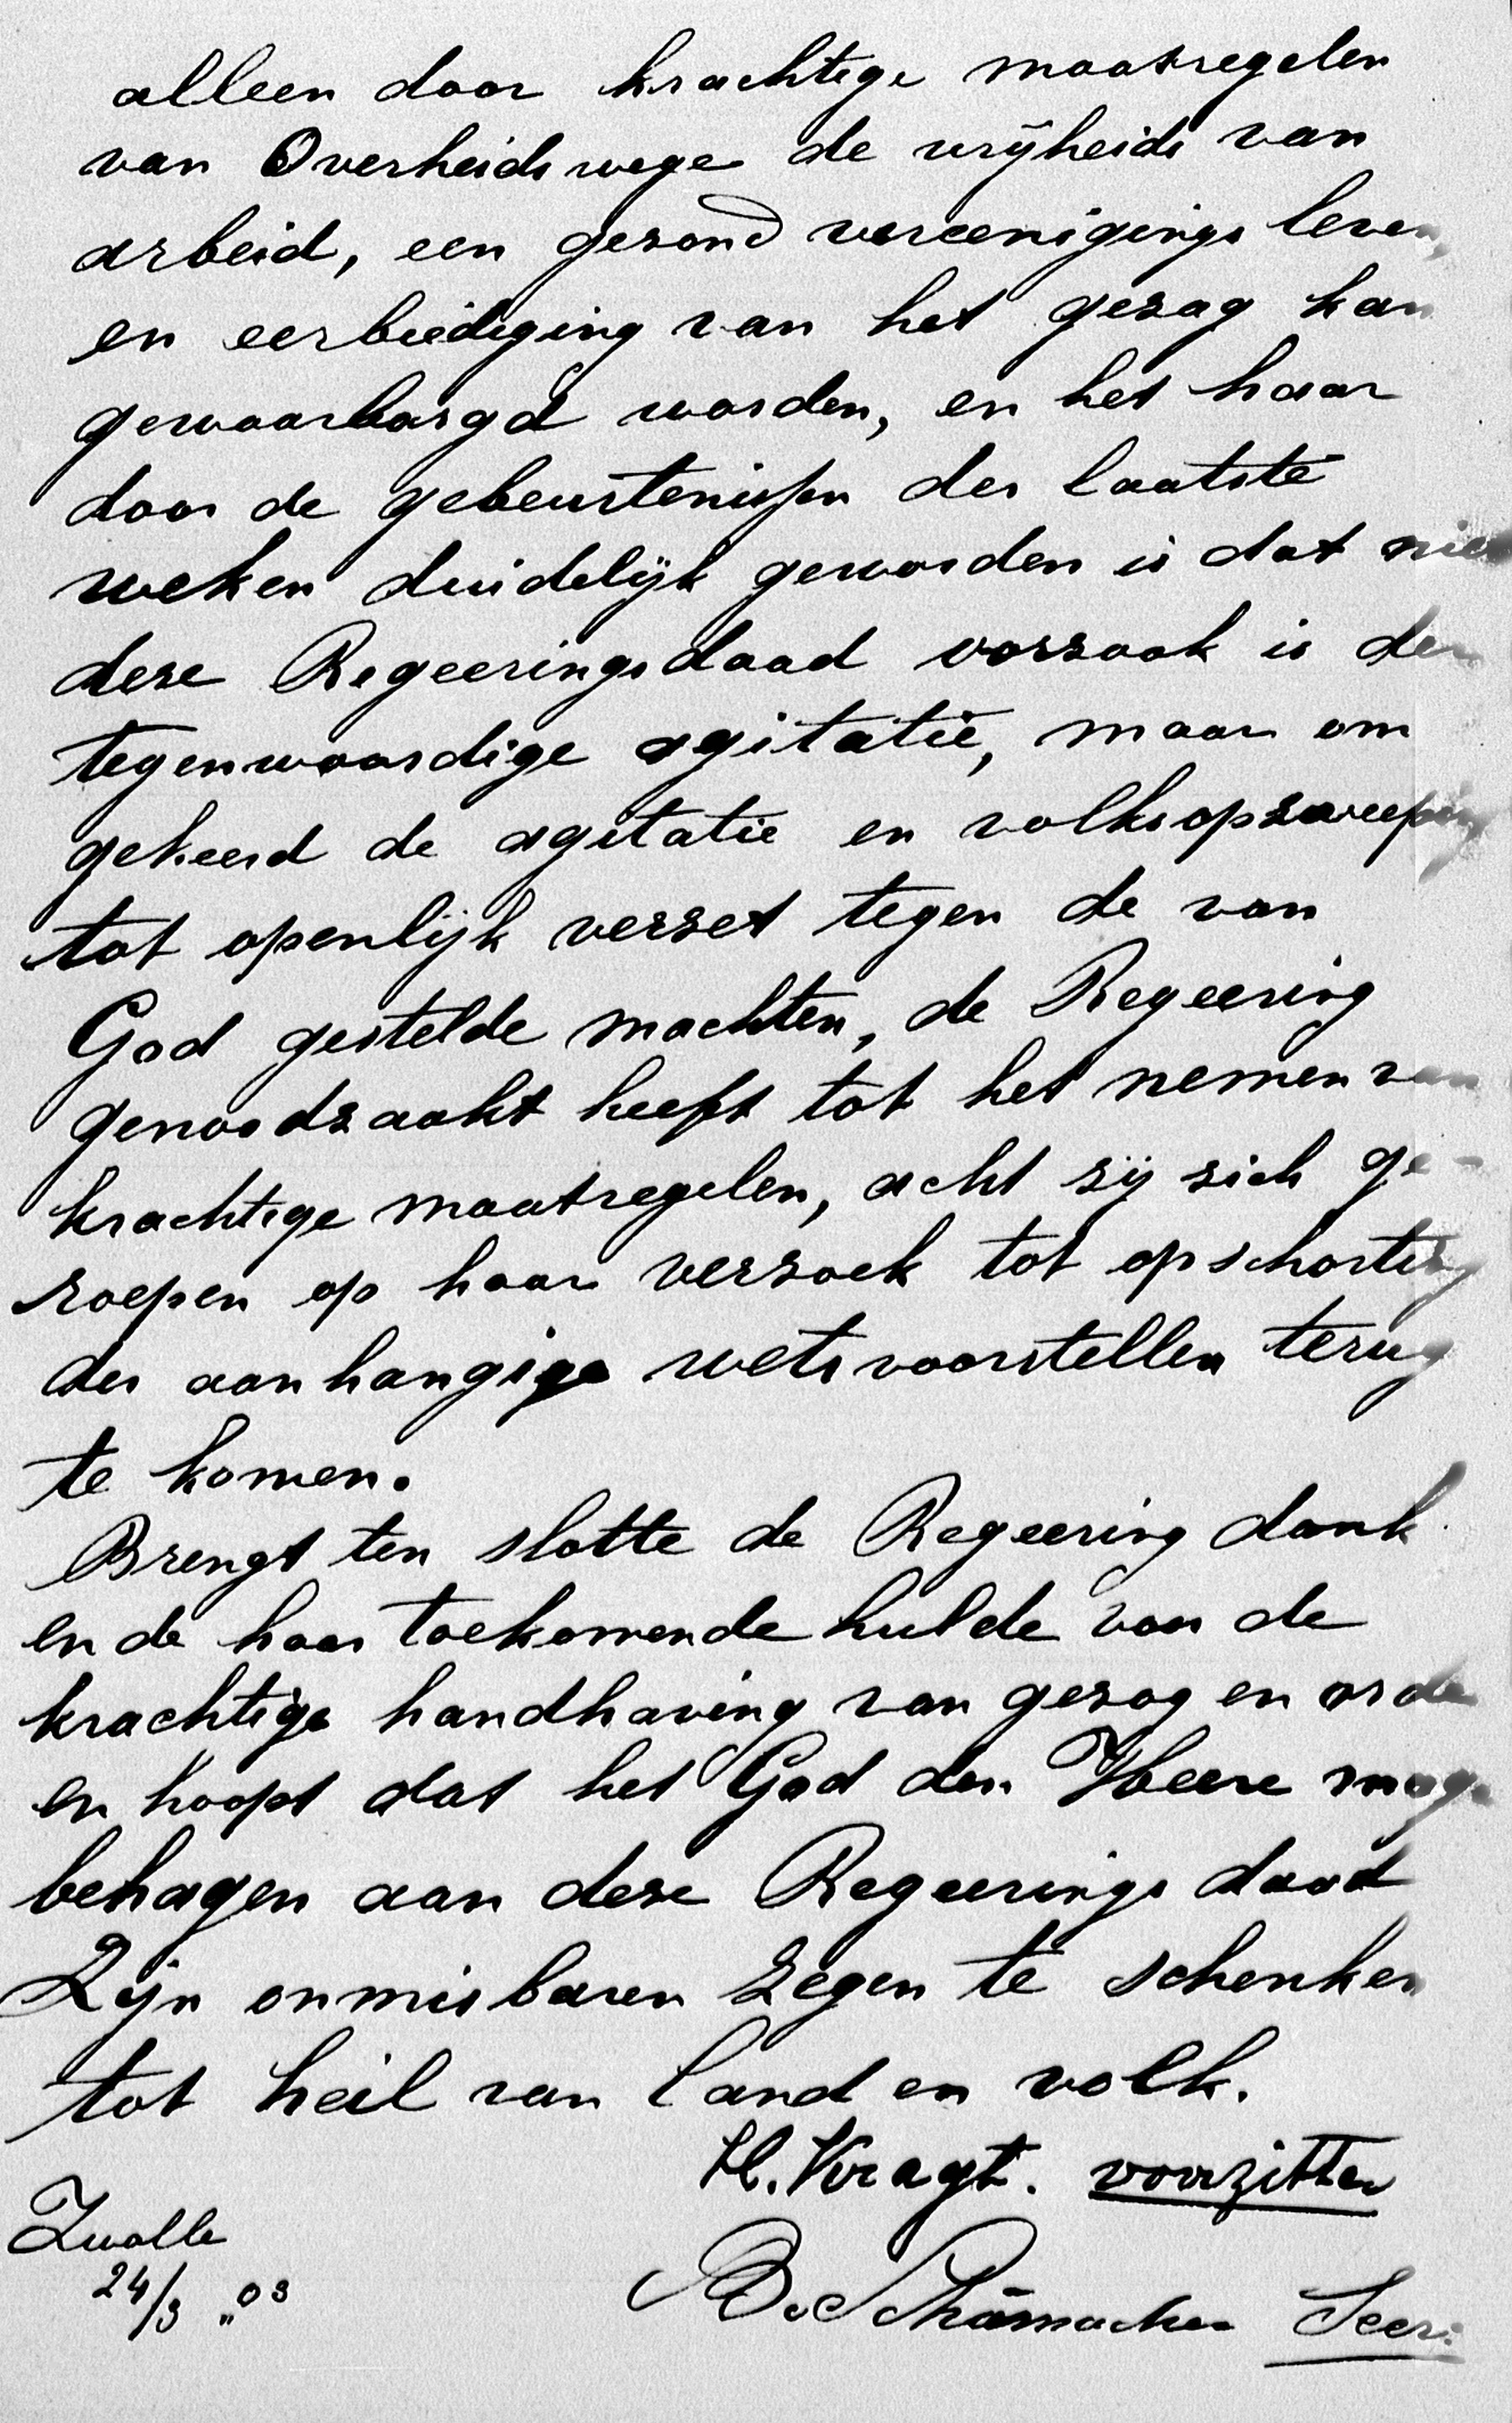 alleen door krachtige maatregelen
van Overheidswege de vrijheid van
arbeid, een gezond vereenigingsleven,
en eerbiediging van het gezag kan
gewaarborgd worden, en het haar
door de gebeurtenissen der laatste
weken duidelijk geworden is dat niet
deze Regeeringsdaad oorzaak is der
tegenwoordige agitatie, maar om
gekeerd de agitatie en volksopzweeping
tot openlijk verzet tegen de van
God gestelde machten, de Regeering
genoodzaakt heeft tot het nemen van
krachtige maatregelen, acht zij zich ge-
roepen op haar verzoek tot opschorting
der aanhangige wetsvoorstellen terug
te komen.
Brengt ten slotte de Regeering dank
en de haar toekomende hulde voor de
krachtige handhaving van gezag en orde
en hoopt dat het God den Heere moge
behagen aan deze Regeeringsdaad
Zijn onmisbaren zegen te schenken
tot heil van land en volk.
H. Kragt. voorzitter
Zwolle
24/3 „03
B. Schümacher Secr: